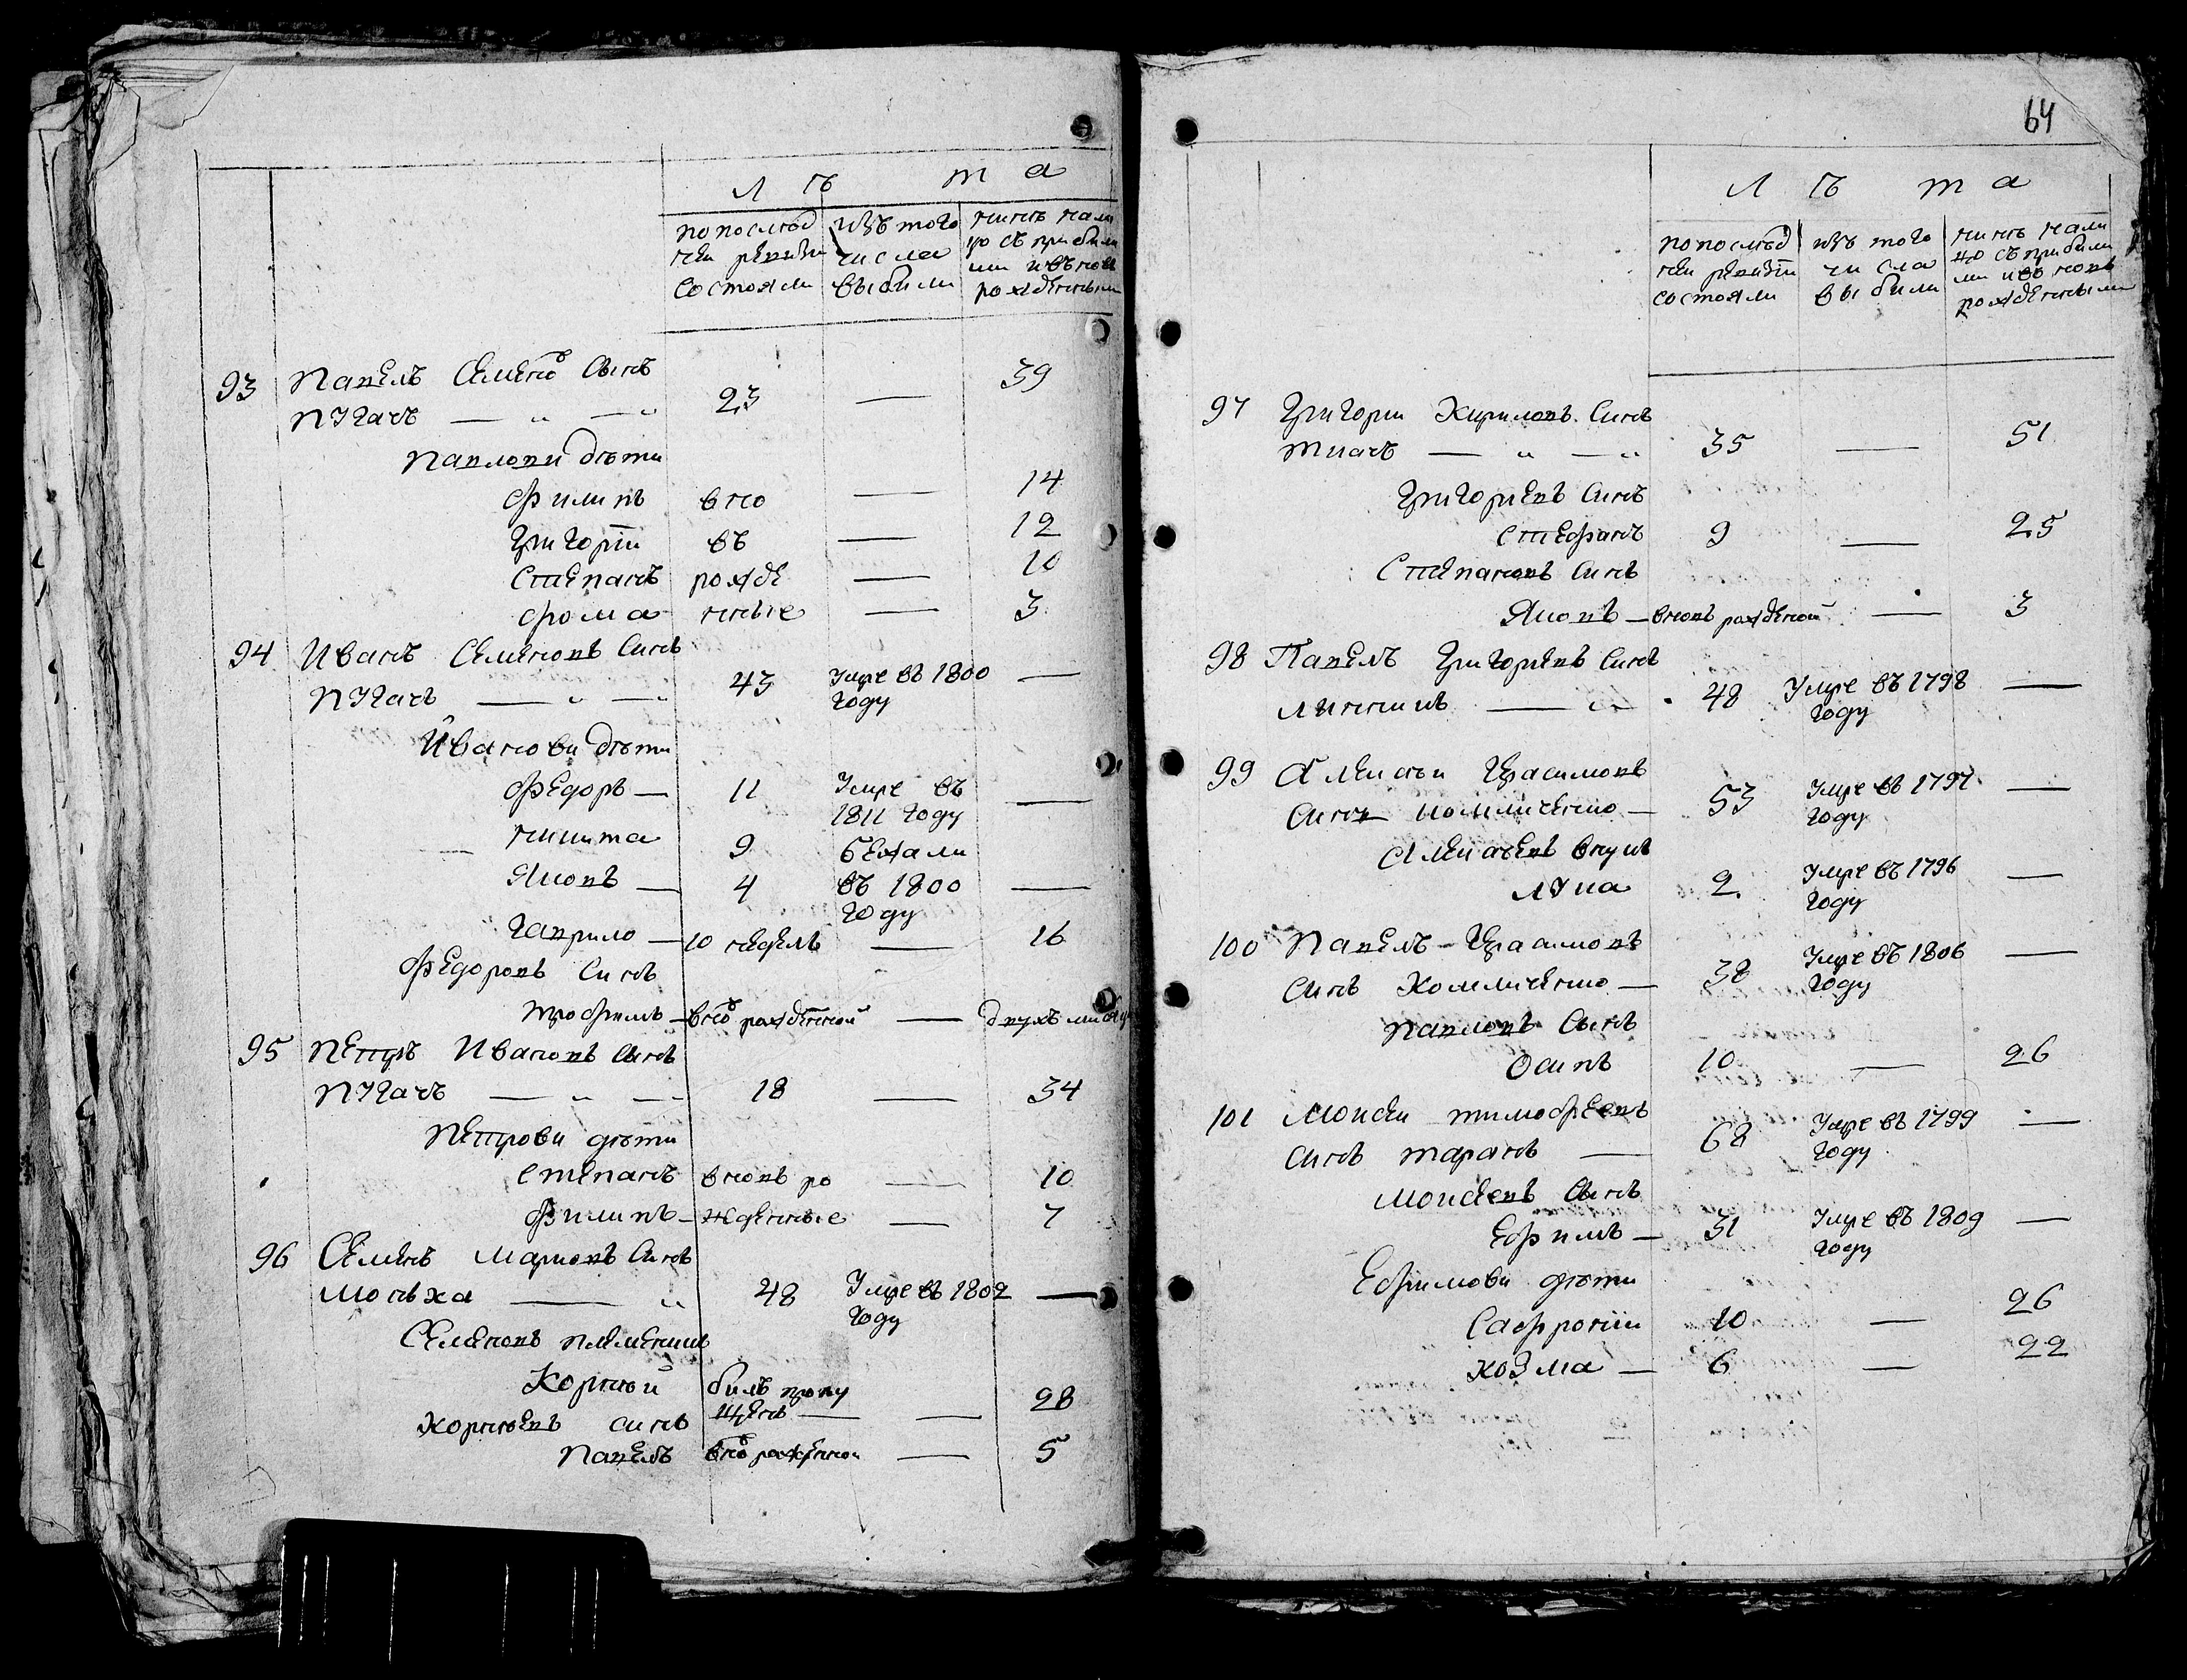 Лѣта
по послѣд ней ревизіи состояли
изъ того числа выбыли
нынѣ нали цо съ прибыли ми и вѣ новь рожденными
93 Павелъ Семено въ Сынъ 39
Пугачъ — " — " 23 —
Павлови дѣти
Филипъ вно — 14
Григорій въ — 12
Степанъ рожде — 10
Фома нные — 3
94 Иванъ Семеновъ Синъ
Пугачъ — " — " 43 Умре въ 1800 году —
Иванови дѣти
Федоръ — 11 Умре въ 1811 году —
никита 9 бежали
Яковъ — 4 въ 1800 году —
Гаврило — 10 недель — 16
Федоровъ Синъ
трофимъ — вно въ рожденной —
95 Петръ Ивановъ Сынъ
Пугачъ — " — " 18 — 34
Петрови дѣти
степанъ вновь ро — 10
Филипъ — жденные — 7
96 Семенъ Марковъ Синъ
48 Умре въ 1802 году —
Семеновъ племенникъ
Корней билъ пропу щенъ — — 28
Корнѣевъ синъ
Павелъ вно въ рожденной — 5
64
Лѣта
по послѣд ней ревизіи состояли
изъ того числа выбили
нинѣ нали цо съ прибили ми и въ новь рожденными
97 Григори Кириловъ Синъ
ткачъ — " — " 35 — 51
Григориевъ Синъ
Стефанъ 9 — 25
Степановъ Синъ
Яковъ — вновь рожденой — 3
98 Павелъ Григориевъ Синъ
линникъ — " — 48 Умре въ 1798 году —
99 Алексѣи Герасимовъ
Синъ коломиченко — 53 Умре въ 1797 году —
Алексѣевъ внукъ
лука 2 Умре въ 1796 году —
100 Павелъ Герасимовъ
Синъ Коломиченко — 38 Умре въ 1806 году —
Павловъ Сынъ
Осипъ 10 — 26
101 Моисеи тимофеевъ
синъ таранъ — 68 Умре въ 1799 году —
Моисеевъ Сынъ
Ефимъ — 31 Умре въ 1809 году —
Ефимови дѣти
Сафроній 10 — 26
козма — 6 — 22